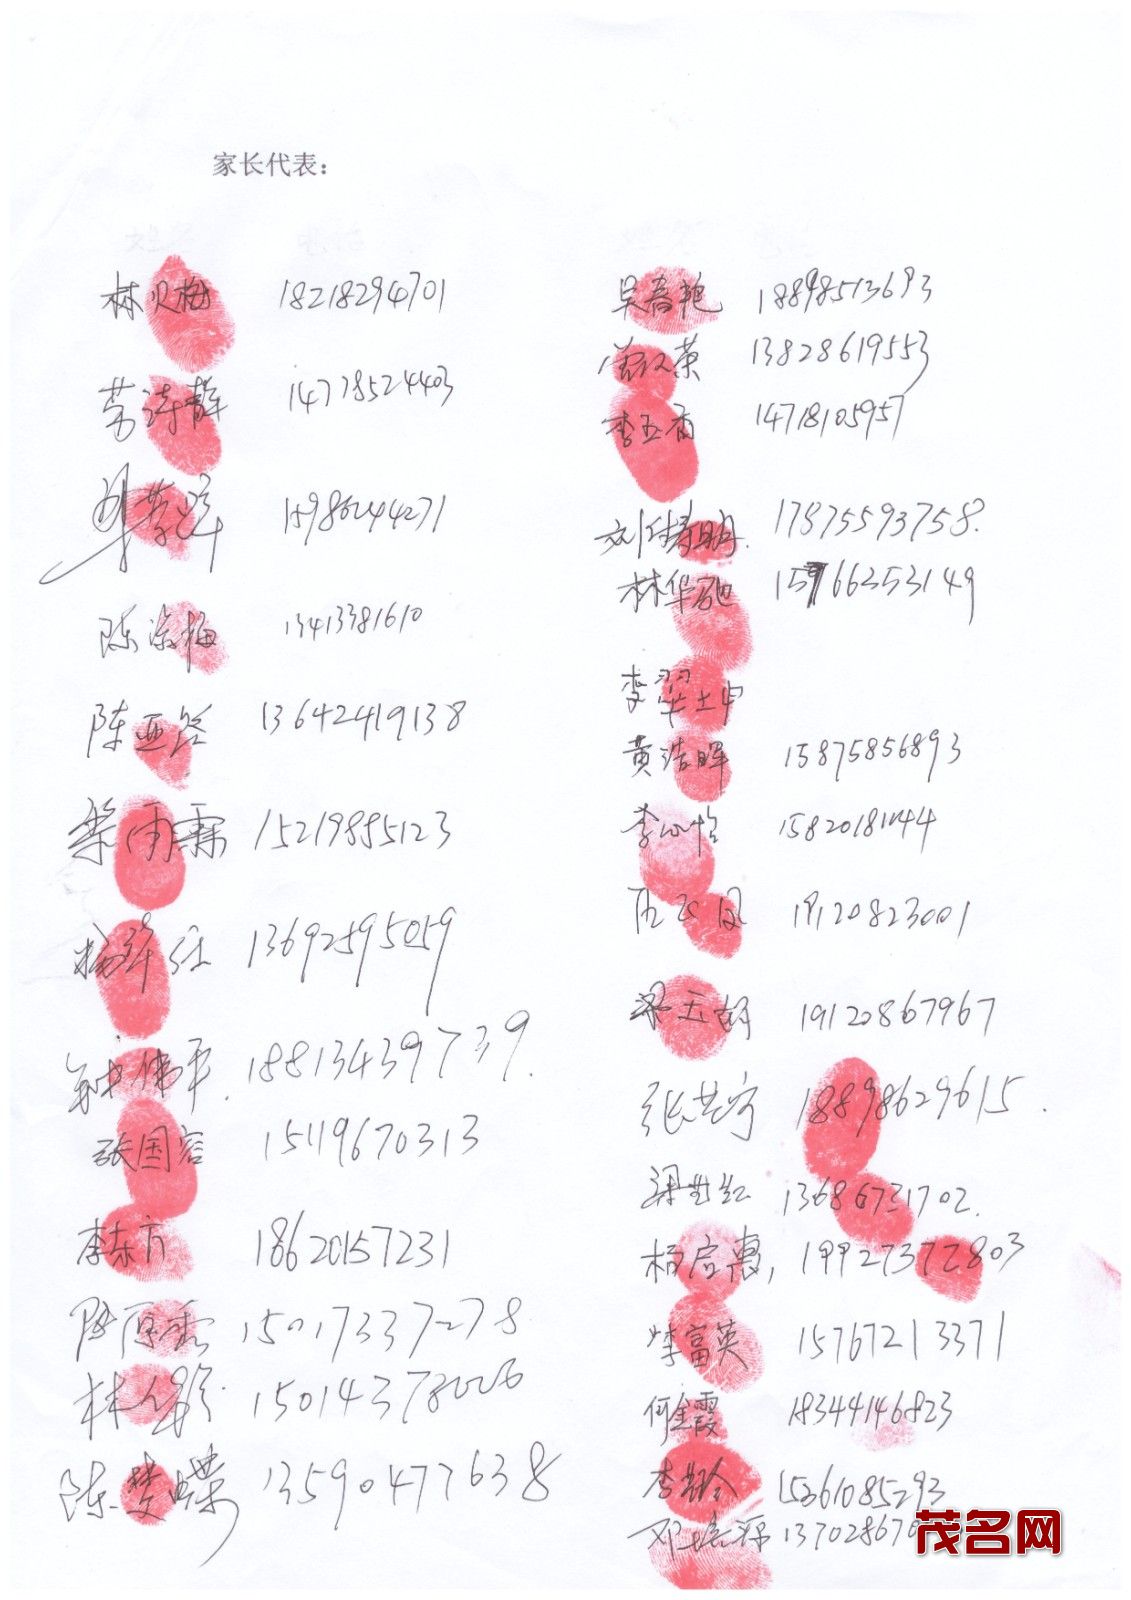 家长代表：
林贝梅 18218294701
劳诗静 14778524403
15986244271
陈 梅 13413381610
陈亚 13642419138
梁雨霖 15219885123
杨 13692595059
钟伟平 18813439739
张国容 15119670313
李东方 18620157231
15017337278
林 15014378006
陈梦蝶 13590477638
吴春艳 18898513693
荣 13828619553
李玉香 14718105957
刘付寿明 17875593758
林华 15966253149
李翠
黄浩晖 15875856893
李心怡
凤 19120823001
梁玉 19120867967
张 宇 18898629615
梁 红 13686731702
杨启惠，19927372803
李富英 15767213371
何金霞 18344146823
李 玲 15361085293
邓 源 137028670
茂名网